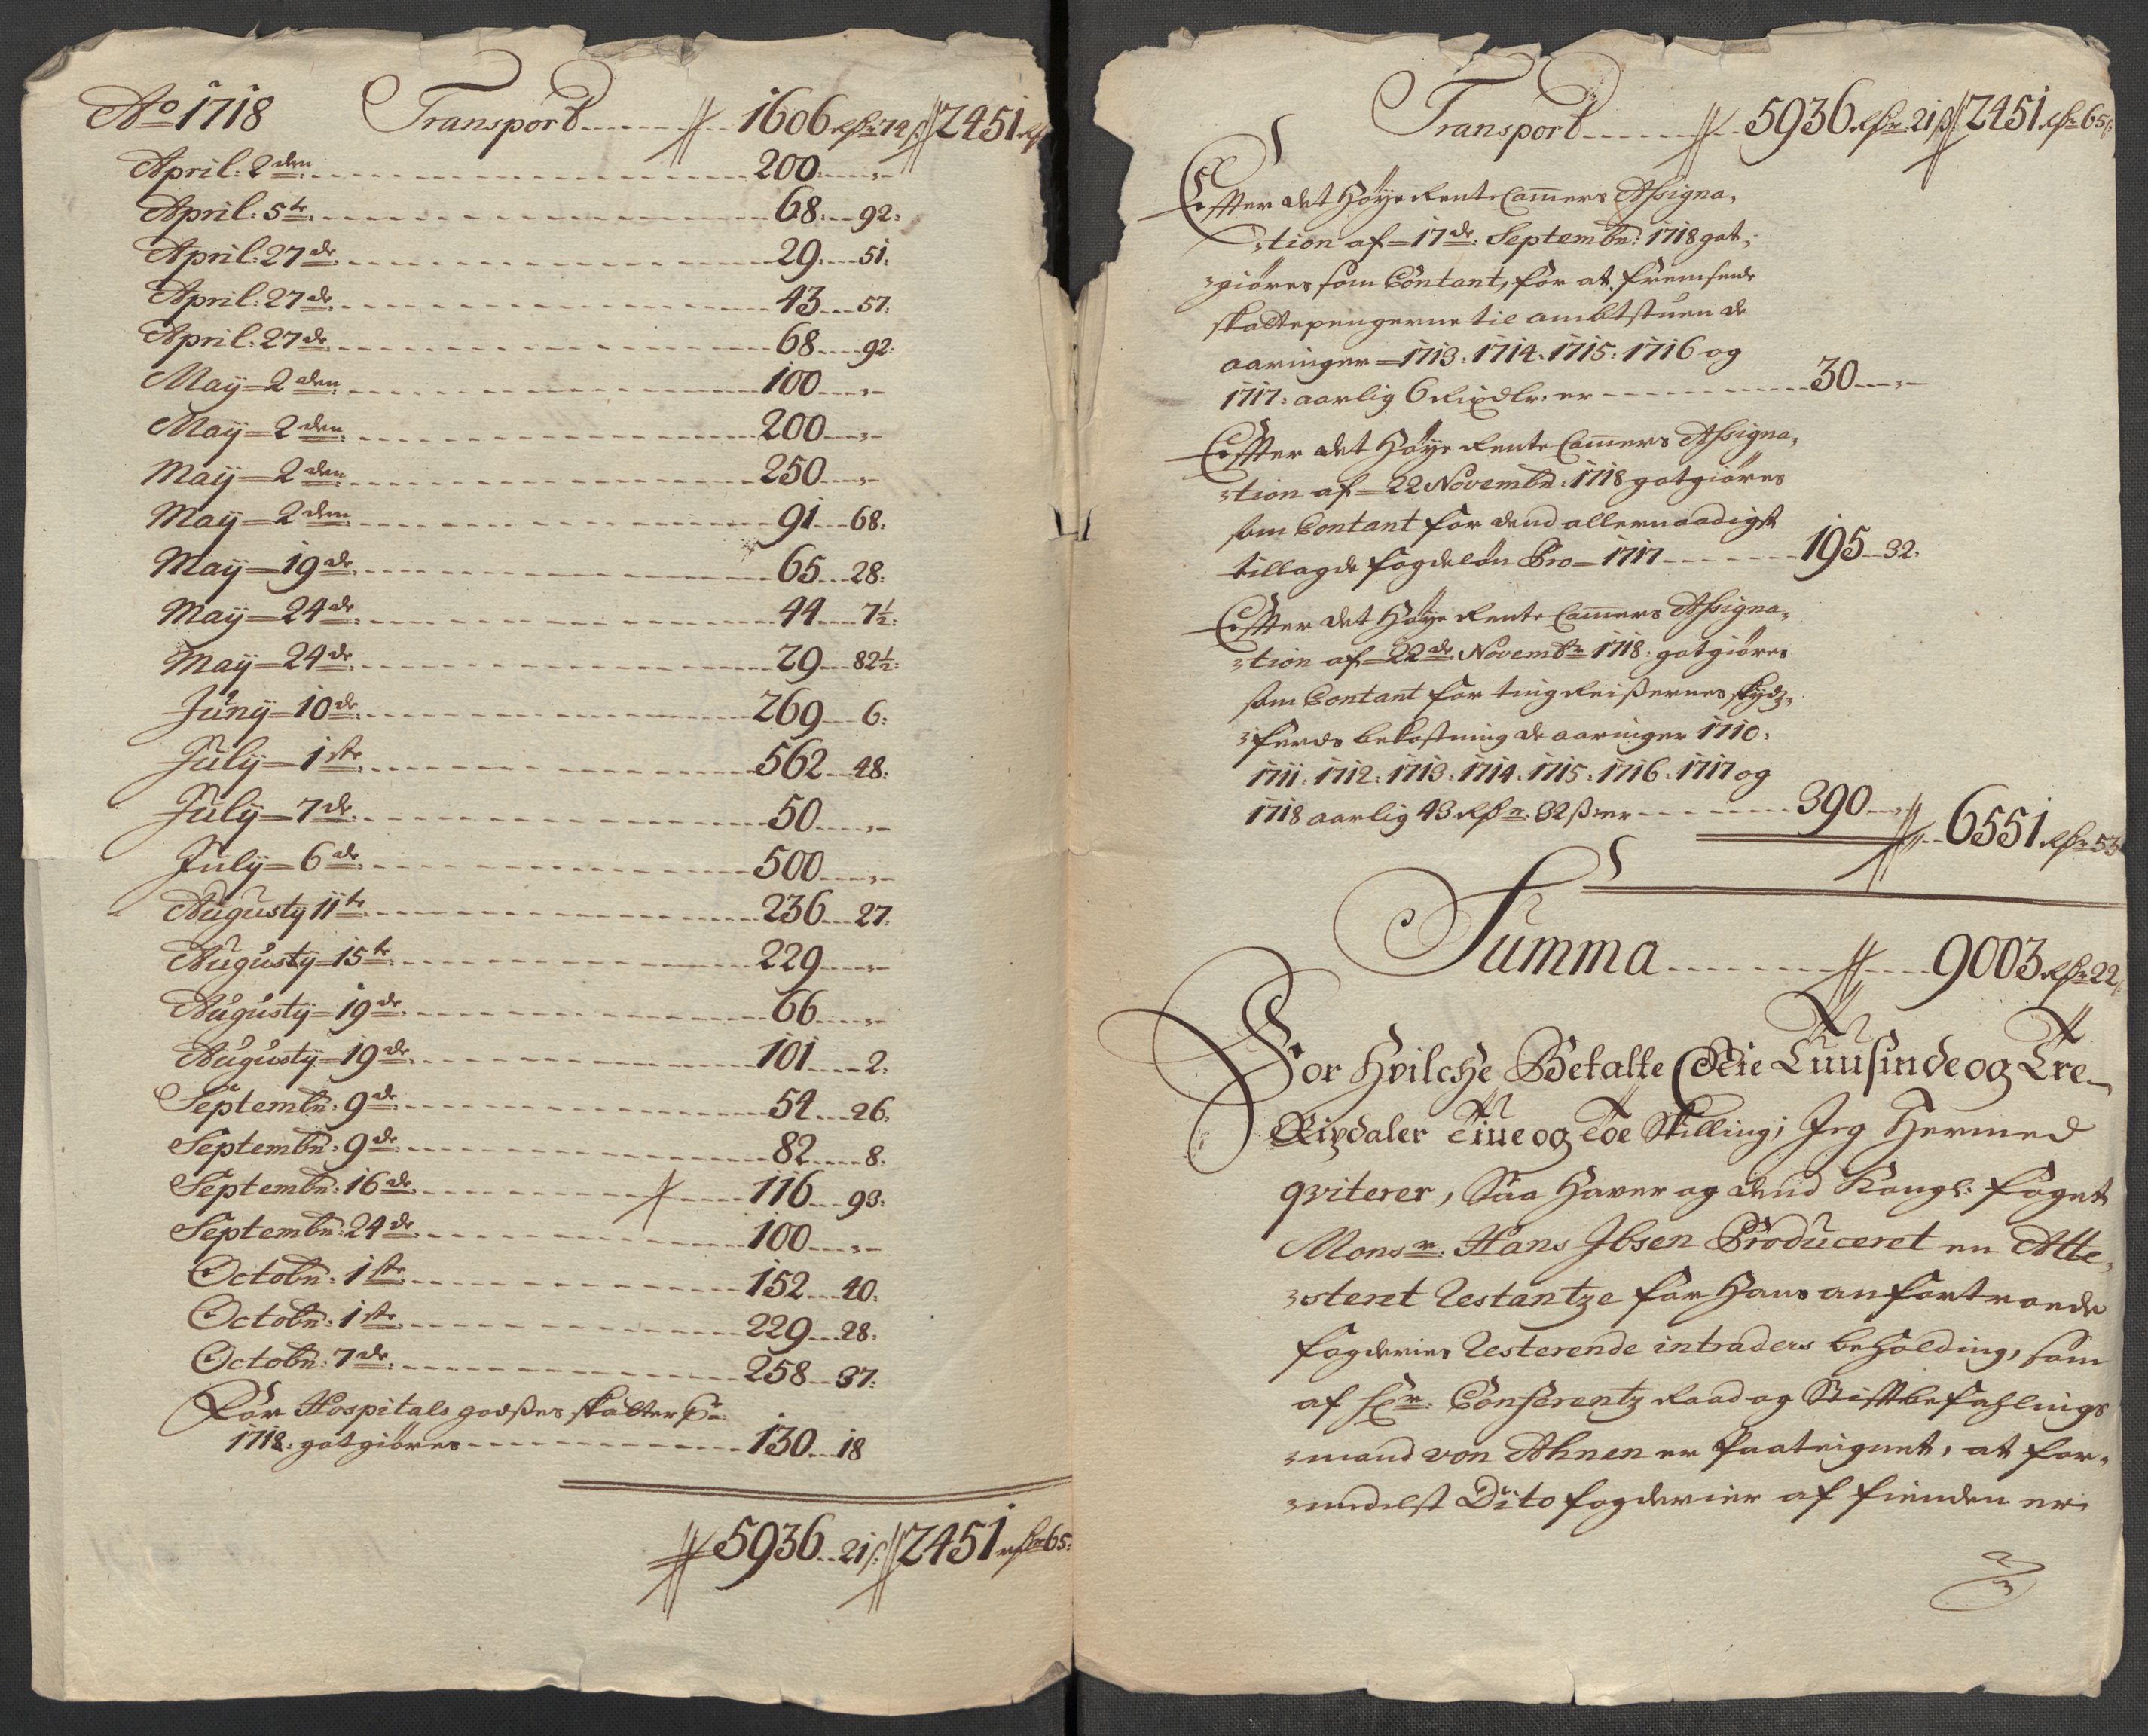 Ao 1718 Transport 1606 Rdr 74 ß 2451 Rd
April: 2den 200
April: 5te 68 92:
April: 27de 29 51:
April: 27de 43 57:
April: 27de 68 92:
Maÿ 2den 100
Maÿ 2den 200
Maÿ 2den 250
Maÿ 2den 91 68:
Maÿ 19de 65 28:
Maÿ 24de 44 7½:
Maÿ 24de 29 82½:
Junÿ 10de 269 6:
Julÿ 1ste 562 48:
Julÿ 7de 50
Julÿ 6de 500
Augustÿ 11te 236 27:
Augustÿ 15te 229
Augustÿ 19de 66
Augustÿ 19de 101 2:
Septembr: 9de 54 26:
Septembr: 9de 82 8:
Septembr: 16de 116 93:
Septembr: 24de 100
Octobr: 1ste 152 40:
Octobr: 1ste 229 28:
Octobr: 7de 258 37:
For Hospitals godßes skatter
1718: gotgiøres 130 18
5936 21 ß 2451 Rdr 65:
Transport 5936 Rdr 21 ß 2451 Rdr 65 ß
Effter det Høye Rente Camers Assigna-
tion af 17de Septembr: 1718 got-
giøres som Contant, for at fremsende
skattepengerne til ambtstuen de
aaringer 1713: 1714: 1715: 1716 og
1717: aarlig 6 Rixdlr: er 30
Effter det Høye Rente Camers Assigna-
tion af 22 Novembr: 1718 gotgiøres
som Contant for dend allernaadigst
tillagde fogdeløn Pro 1717 195 32:
Effter det Høye Rente Camers Assigna-
tion af 22de Novembr 1718: gotgiøres
som Contant for tingReißernes skyds-
ferds bekostning de aaringer 1710:
1711: 1712: 1713: 1714: 1715: 1716: 1717 og
1718 aarlig 43 Rdr 32 ß er 390 6551 Rdr 53
Summa 9003 Rdr 22 ß
For Hvilche Betalte Nie Tuusinde og Tre
Rixdaler Tiue og Toe Skilling; Jeg Hermed
qviterer, Saa Haver og dend Kongl: foget
Monsr. Hans Jbsen Produceret en Atte-
steret Restantze for Hans anfortroede
fogderies Resterende intraders beholding, som
af Hr: Conferentz Raad og Stiftbefahlings
mand von Ahnen er Paateignet, at for-
medelst Dito fogderier af fienden er